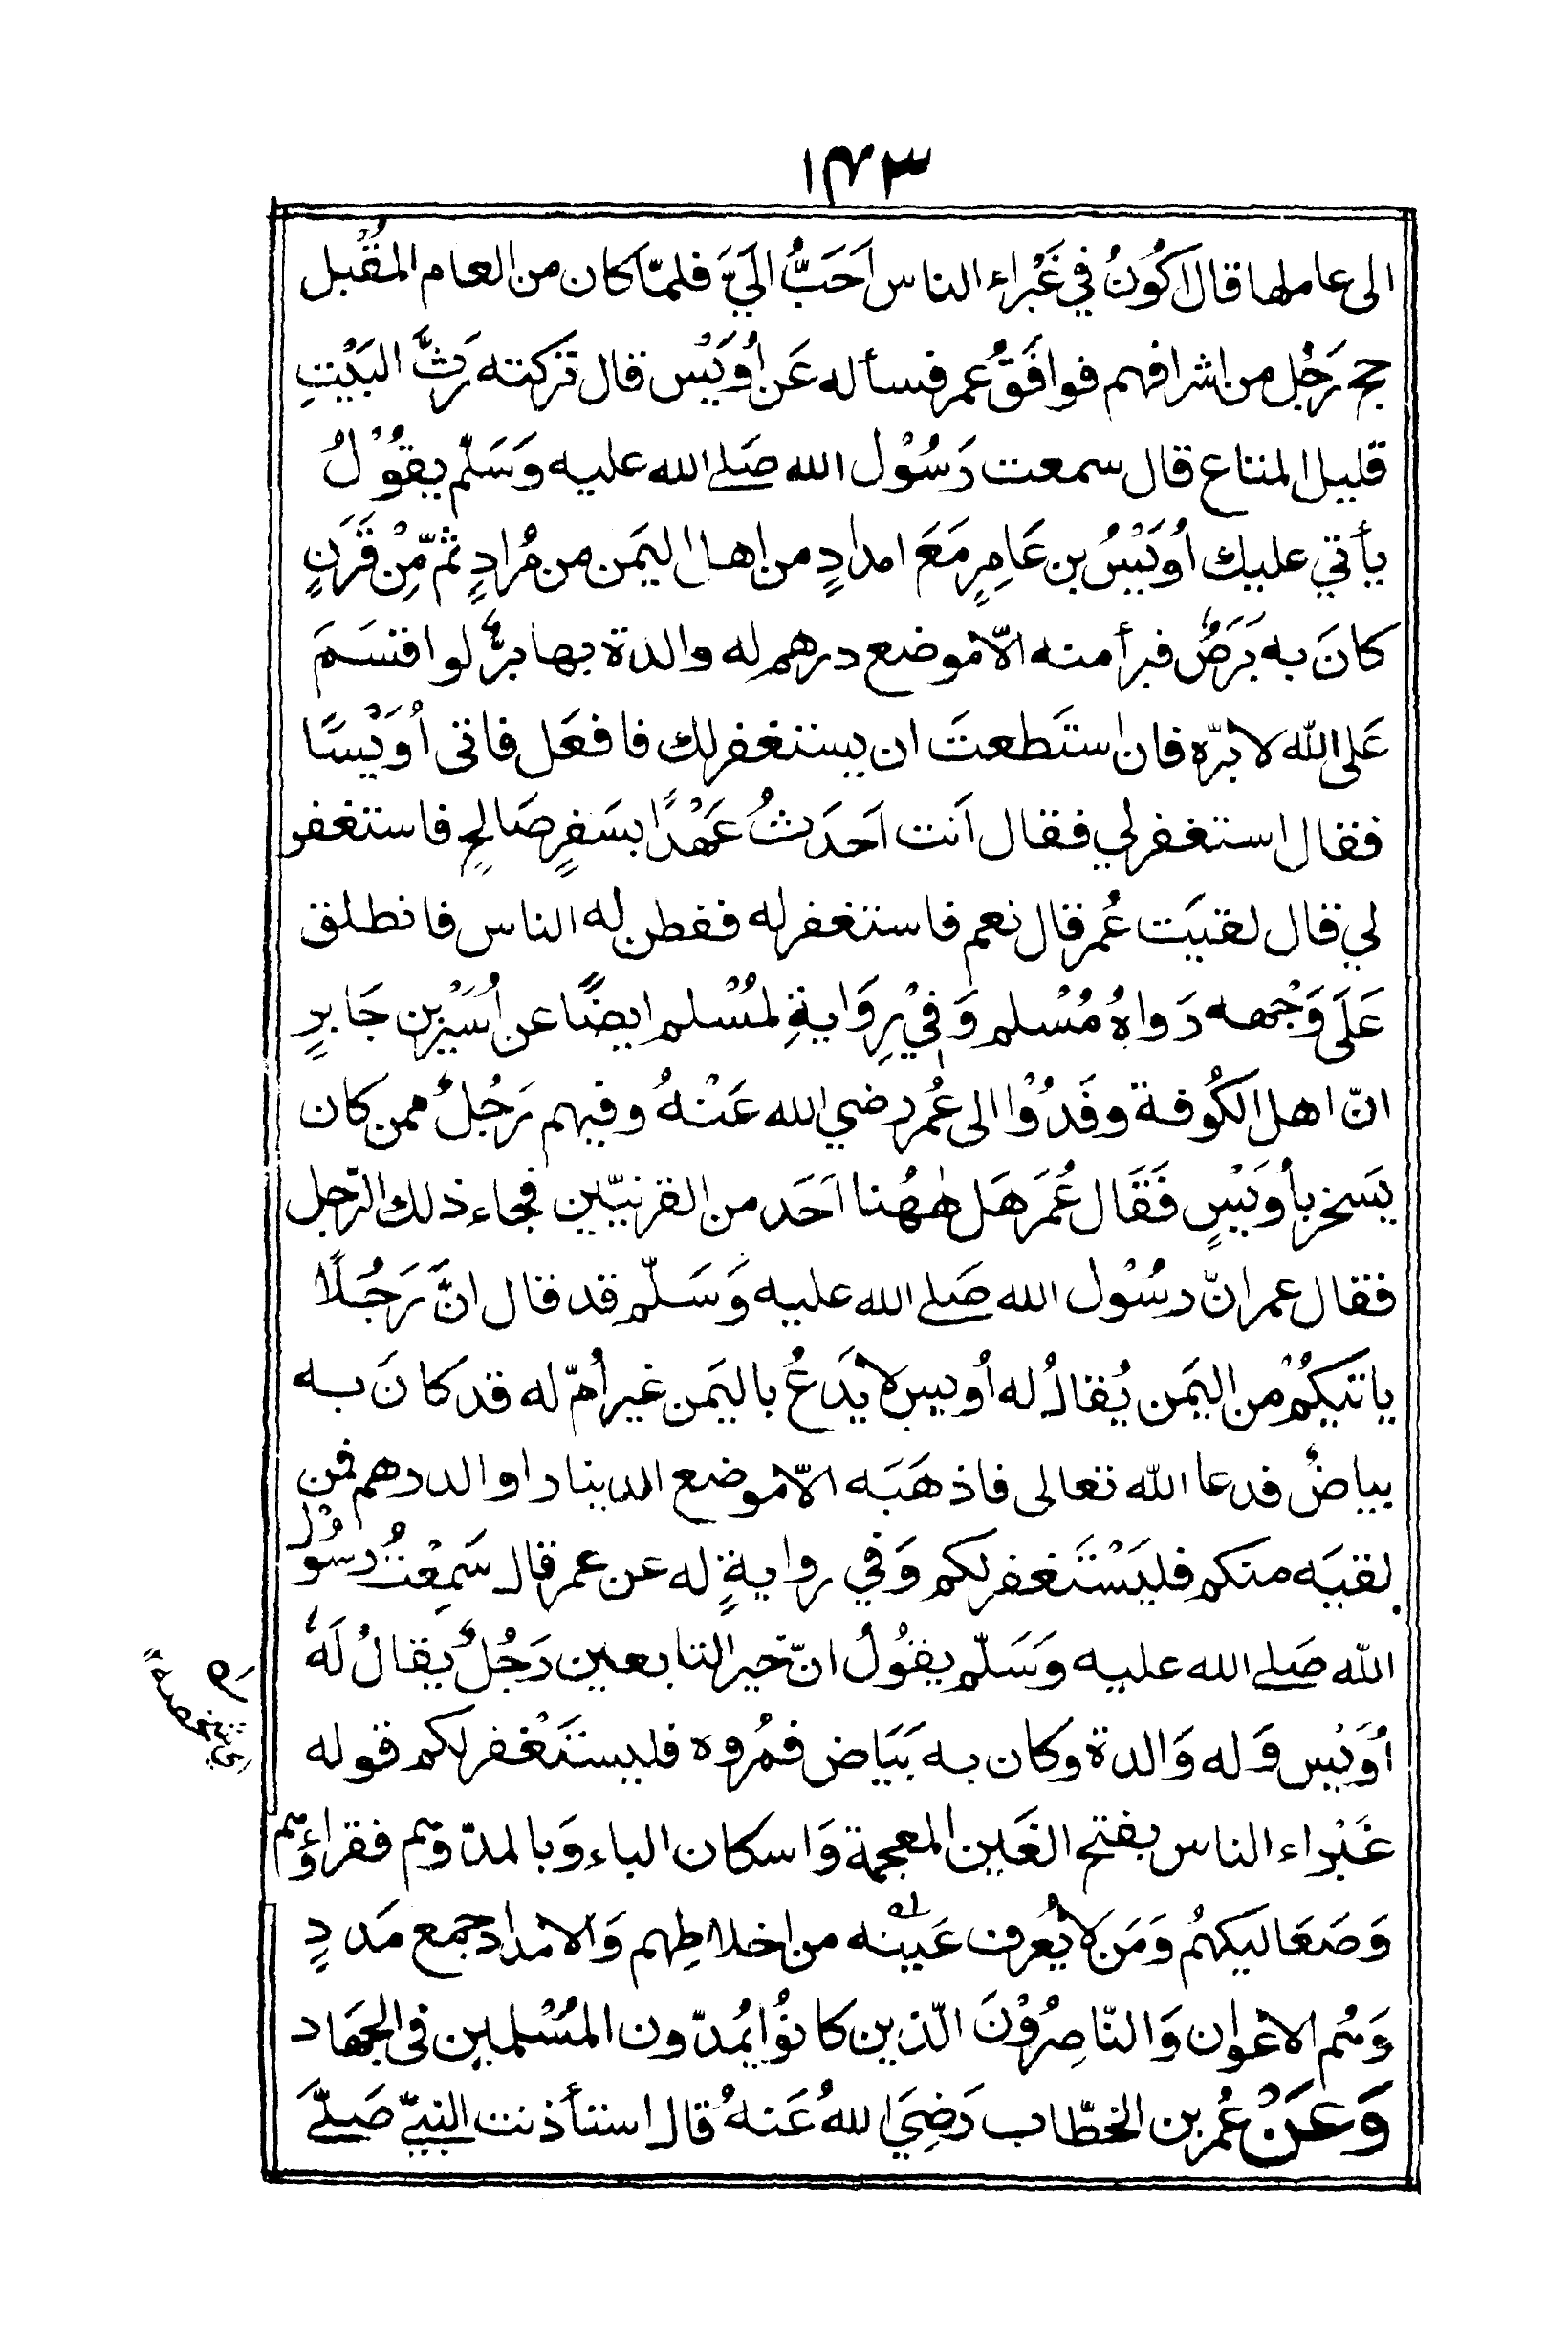 ١٤٣
الى عاملها قال اَكُونُ في غَبْراء الناس اَحَبُّ الَيَّ فلمّا كان من العام المقْبُل
حج رَجُل من اشرافهم فوافَقَ عُمر فسأله عَن اُوَيْس قال تركته رَثَّ البَيْتِ
قليل المتاع قال سمعت رَسُوْل الله صَلے الله عليه وَسَلّم يقُوْلُ
يأتي عليك اُوَيْسُ بن عَامِرٍ مَعَ امدادٍ من اهل اليَمن من مُرادٍ ثمّ مِّنْ قَرَنٍ
كانَ به بَرَصٌ فبرأ منه الّا موضع درهم له والدة بها برٌّ لو اقسَمَ
عَلى الله لابرّه فان استَطعتَ ان يستغفر لك فافعَل فاتى اُوَيْسًا
فقال استغفر لي فقال اَنت اَحدَثُ عَهْدًا بسَفرٍ صَالحٍ فاستغفر
لي قال لقيَت عُمر قال نعم فاستغفر له ففطن له الناس فانطلق
عَلَى وَجْهه رَواهُ مُسْلم وَفِيْ رِوَايةِ لمُسْلم ايضًا عن اُسَيْر بن جَابرٍ
انّ اهل الكُوفة وفَدُوْا الى عُمر رضي الله عَنْهُ وفيهم رَجُلٌ ممن كان
يَسخر بأُوَيْسٍ فَقَال عُمَر هَل هٰهُنا اَحَد من القرنيّين فجاء ذلك الرّجل
فقال عمر انّ رسُوْل الله صَلے الله عليه وَسَلّم قد قال انَّ رَجُلًا
ياتيكُمْ من اليَمن يُقالُ له اُويس لا يَدَعُ باليَمن غير اُمّ له قد كانَ به
بياضٌ فدعا الله تعالى فاذهَبَه الّا موضع الدينار او الدرهم فمن
لقيَه منكم فليَسْتَغفر لكم وَفي روايةٍ له عن عمر قال سَمِعْتُ رسُوْل
الله صَلے الله عليه وَسَلّم يقُولُ انّ خير التابعين رَجُلٌ يقالُ لَهُ
اُوَيْس وَله وَالدة وكان به بَيَاض فمُروه فليستَغْفر لكم قوله
غَبْراء الناس بفتح الغَين المعجمة وَاسكان الباء وَبالمدّ وهم فقراؤهم
وَصَعَاليكهُم وَمَن لا يُعرف عَينه من اخلاطِهم وَالامداد جمع مَددٍ
وَهُم الاعْوان وَالنّاصِرُوْنَ الّذين كانوُا يُمدّون المُسْلمين فى الجهَاد
وَعَنْ عُمر بن الخطّاب رَضِيَ اللهُ عَنهُ قال استأذنت النبيّ صَلَّے